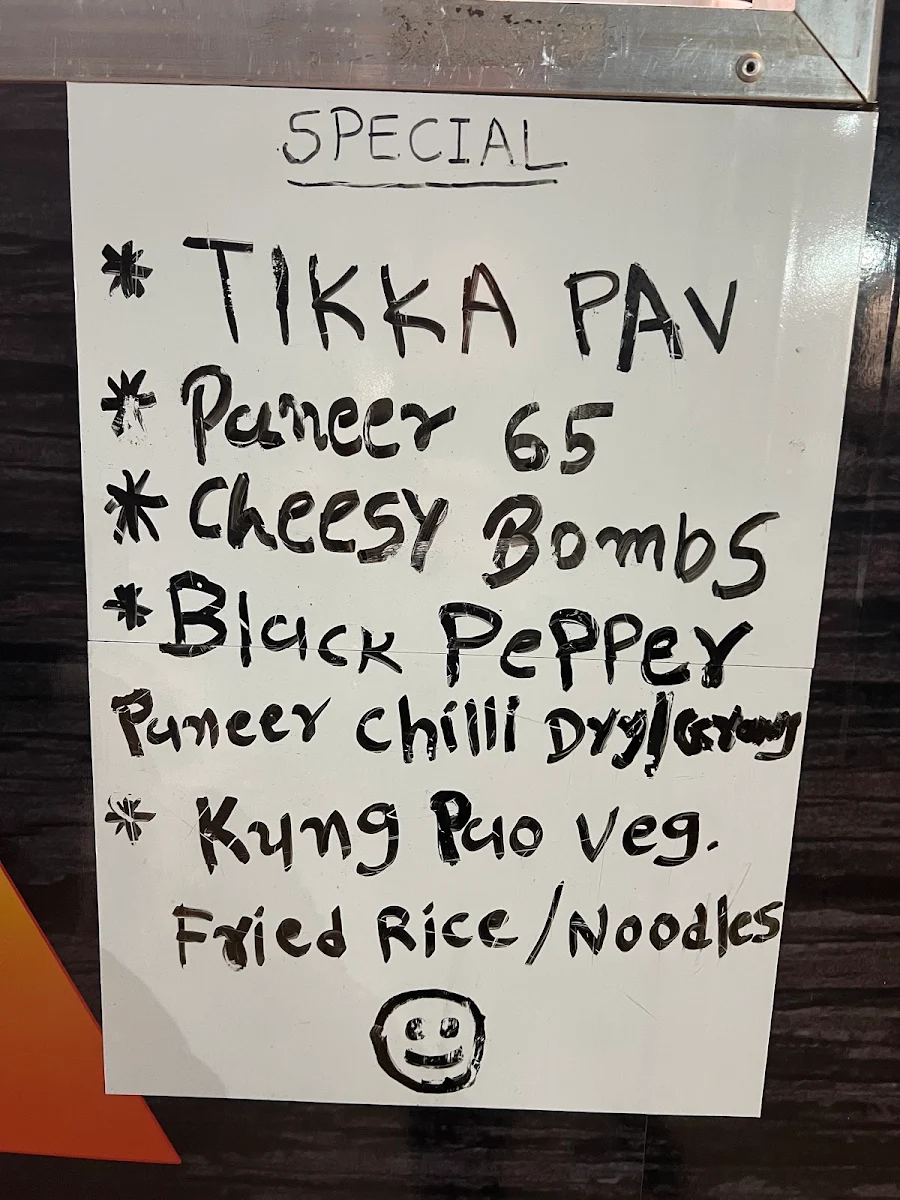 SPECIAL
* TIKKA PAV
* Paneer 65
* Cheesy Bombs
* Black Pepper
Paneer chilli Dry/Gravy
* Kung Pao Veg.
Fried Rice/Noodles